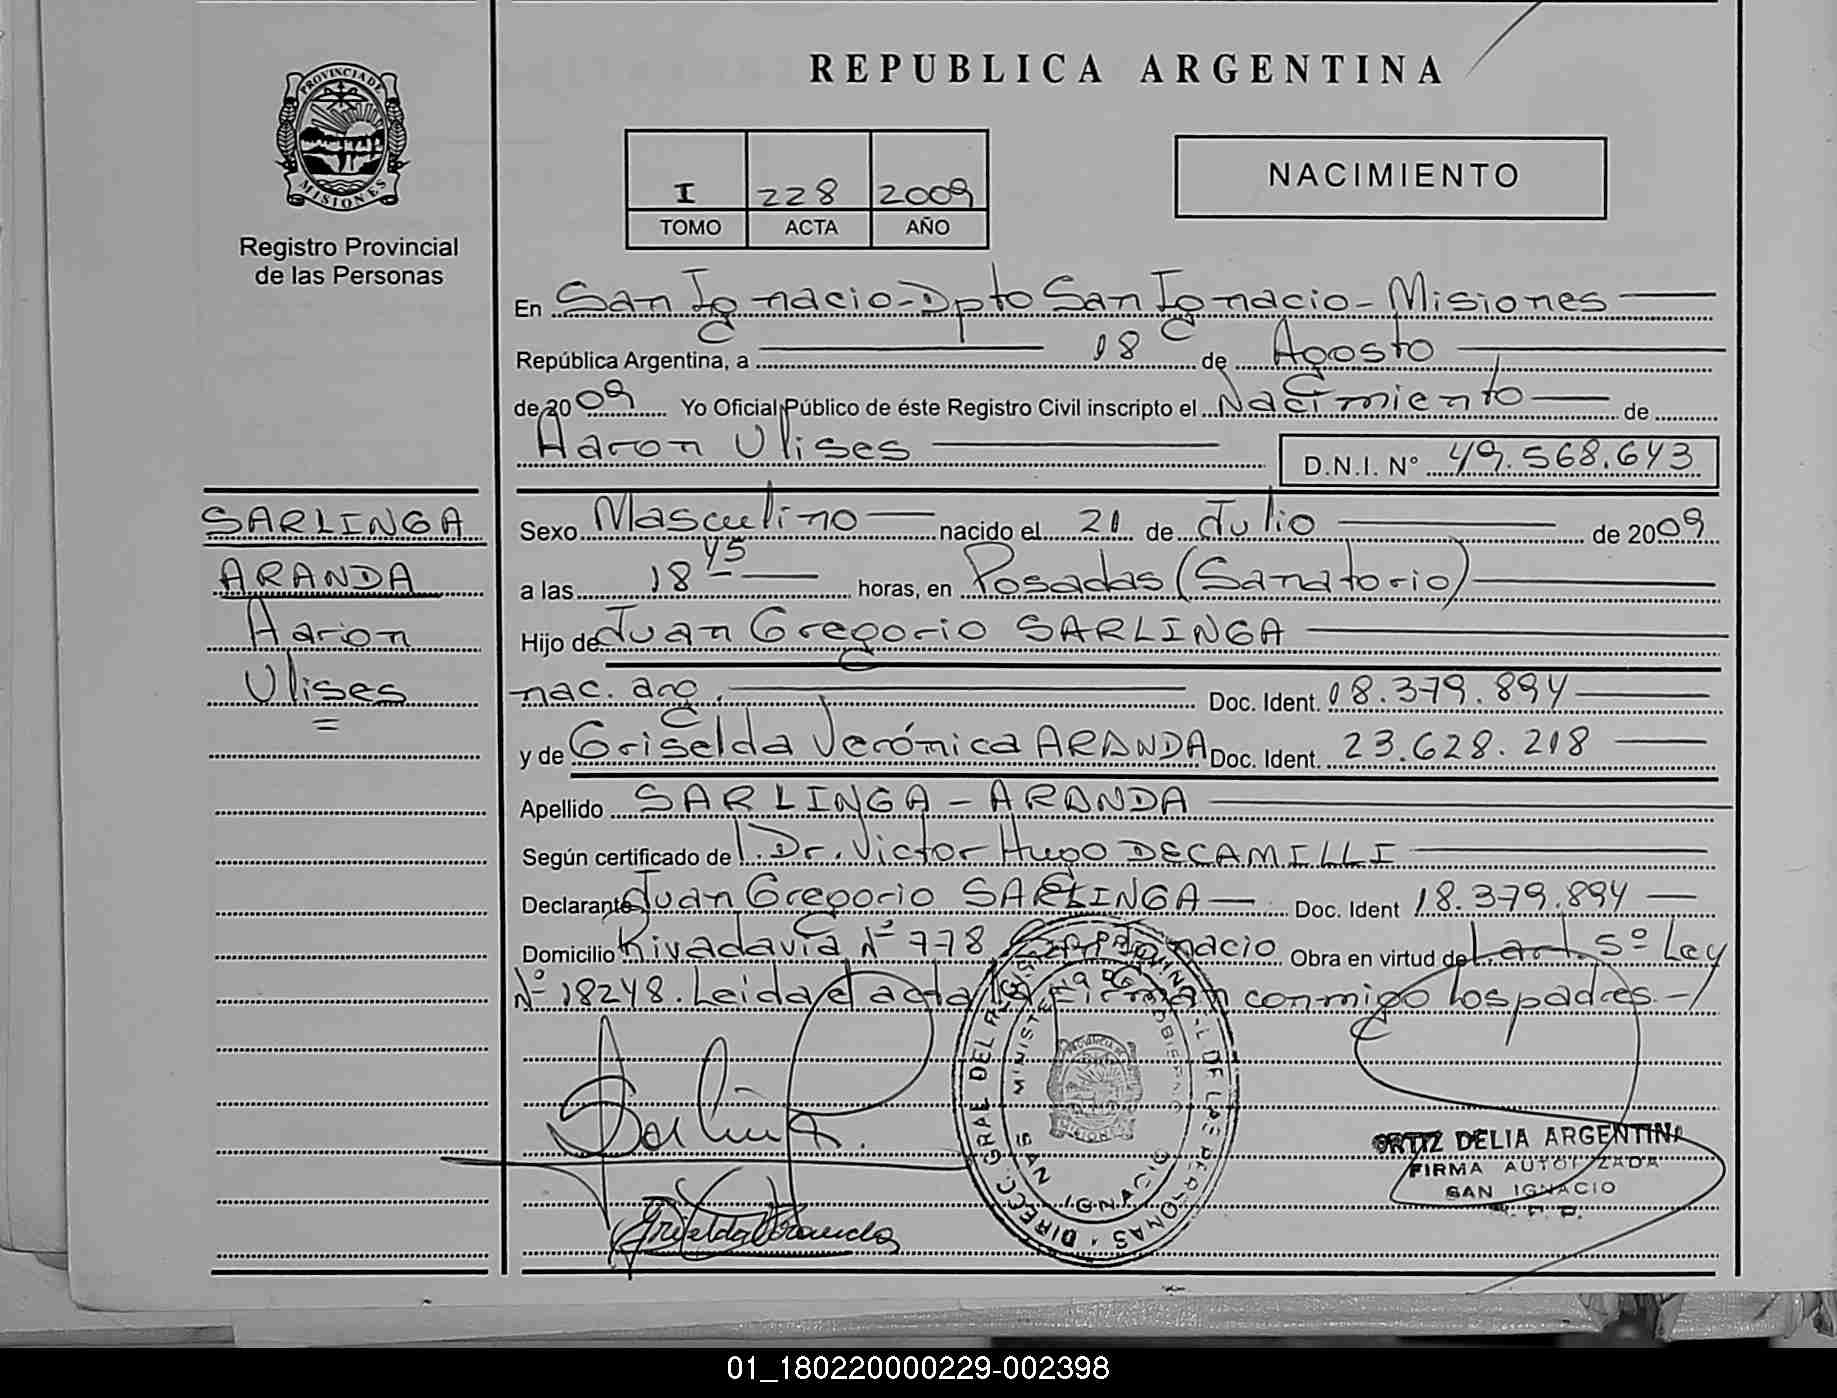 REPUBLICA ARGENTINA
PROVINCIA DE
MISIONES
Registro Provincial
de las Personas
I 228 2009
TOMO ACTA AÑO
NACIMIENTO
En San Ignacio-Dpto San Ignacio-Misiones
República Argentina, a 18 de Agosto
de 2009 Yo Oficial Público de éste Registro Civil inscripto el Nacimiento de
Aaron Ulises D.N.I. N° 49.568.643
SARLINGA
ARANDA
Aaron
Ulises
Sexo Masculino nacido el 21 de Julio de 2009
a las 18 45 horas, en Posadas (Sanatorio)
Hijo de Juan Gregorio SARLINGA
nac. arg. Doc. Ident. 18.379.894
y de Griselda Verónica ARANDA Doc. Ident. 23.628.218
Apellido SARLINGA-ARANDA
Según certificado de l. Dr. Victor Hugo DECAMILLI
Declarante Juan Gregorio SARLINGA Doc. Ident 18.379.894
Domicilio Rivadavia N° 778 San Ignacio Obra en virtud del art. 5º Ley
Nº 18248. Leida el acta la firman conmigo los padres.-
DIRECC. GRAL DEL REGISTRO PROVINCIAL DE LAS PERSONAS
MINISTERIO DE GOBIERNO
SAN IGNACIO
ORTIZ DELIA ARGENTINA
FIRMA AUTORIZADA
SAN IGNACIO
R. P. P.
Griselda Aranda
01_180220000229-002398